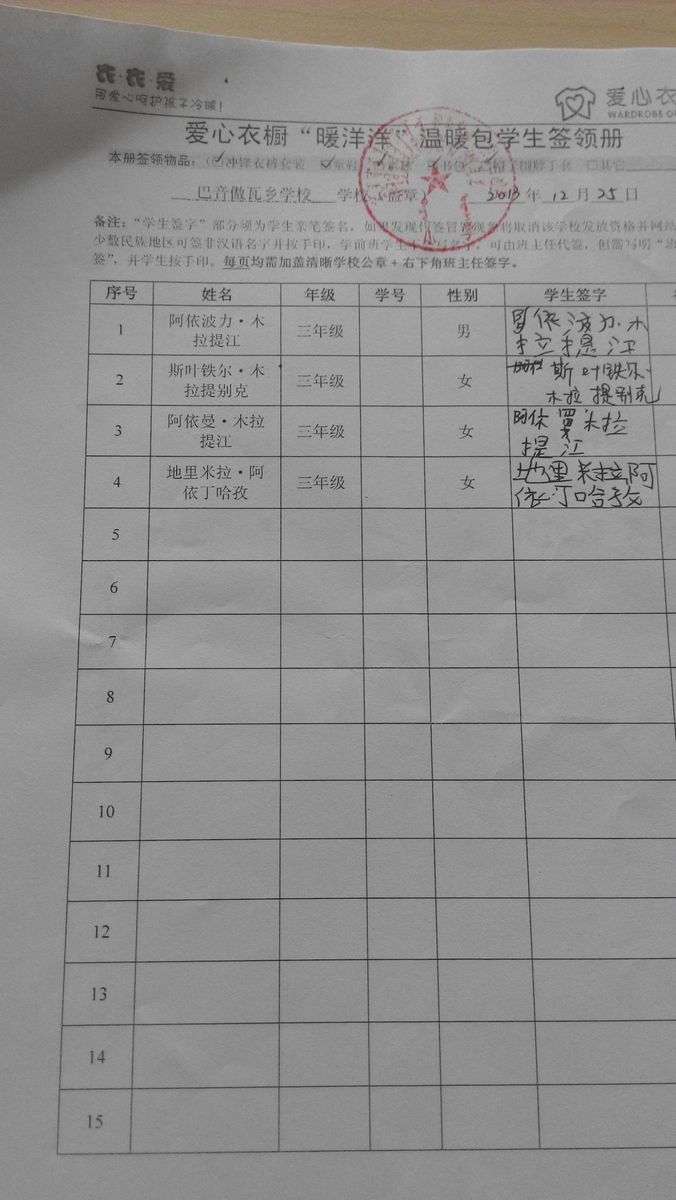 衣·衣·爱
用爱心呵护孩子冷暖！
爱心衣
WARDROBE OF
爱心衣橱“暖洋洋”温暖包学生签领册
本册签领物品：（☑冲锋衣裤套装 ☑童鞋 ☑书包 □其它
巴音傲瓦乡学校 学校（盖章） 2013年12月25日
备注：“学生签字”部分须为学生亲笔签名，如果发现代签冒领现象将取消该学校发放资格并网站
少数民族地区可签非汉语名字并按手印，学前班学生不会写名字，可由班主任代签，但需写明“班
签”，并学生按手印。每页均需加盖清晰学校公章+右下角班主任签字。
序号 姓名 年级 学号 性别 学生签字
1 阿依波力·木拉提江 三年级 男 依波力·木拉提江
2 斯叶铁尔·木拉提别克 三年级 女 斯叶铁尔·木拉提别克
3 阿依曼·木拉提江 三年级 女 阿依 木拉提江
4 地里米拉·阿依丁哈孜 三年级 女 地里米拉阿依丁哈孜
5
6
7
8
9
10
11
12
13
14
15